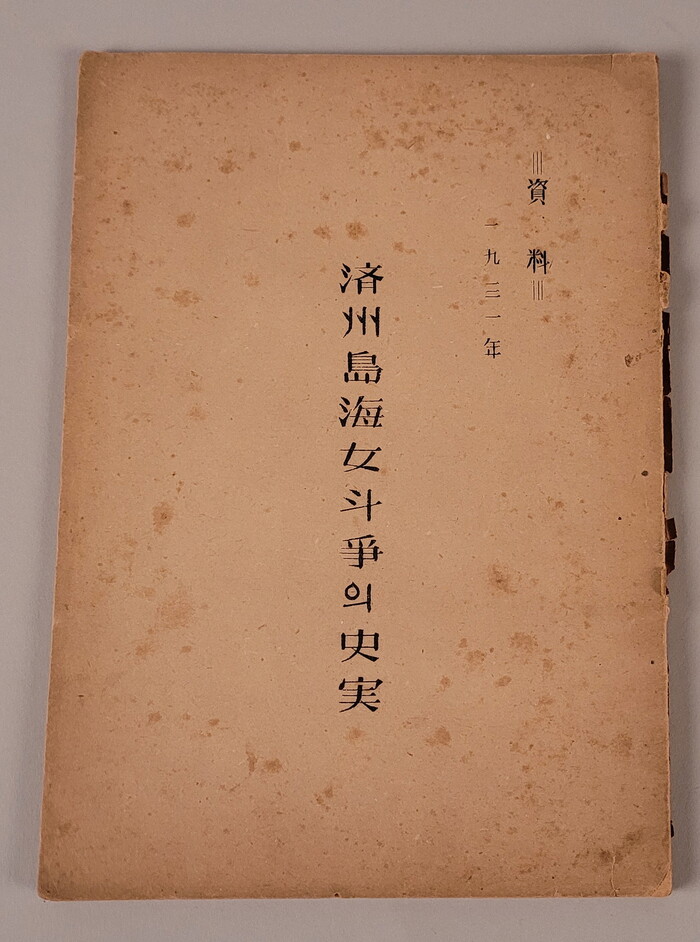 資料
一九三一年
済州島海女斗争의史実